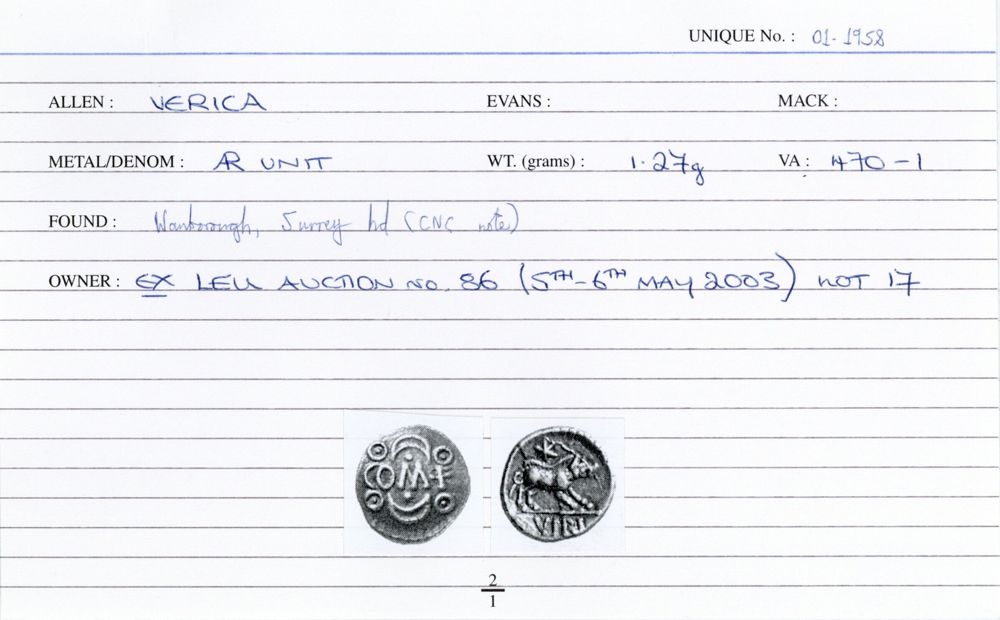 UNIQUE No. : 01-1958
ALLEN : VERICA EVANS : MACK :
METAL/DENOM : AR UNIT WT. (grams) : 1.27g VA : 470-1
FOUND : Wanborough, Surrey hd (CNC note)
OWNER : EX LEU AUCTION NO. 86 (5TH-6TH MAY 2003) LOT 17
COM·F
VIRI
2
1